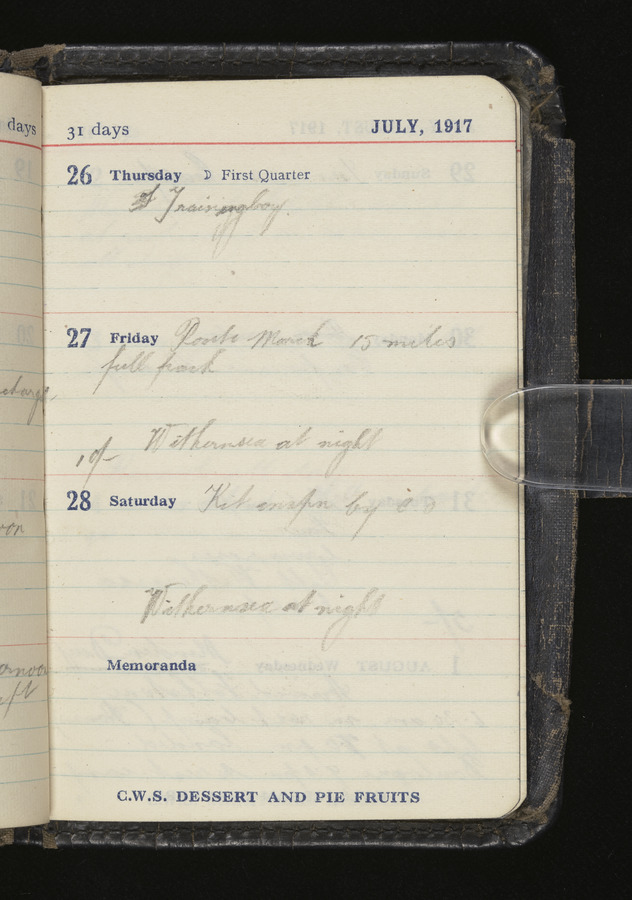 days
31 days
JULY, 1917
26 Thursday ☽ First Quarter
Training
27 Friday Route March 15 miles
full pack
Withernsea at night
28 Saturday Kit inspn by C O
Withernsea at night
Memoranda
C.W.S. DESSERT AND PIE FRUITS